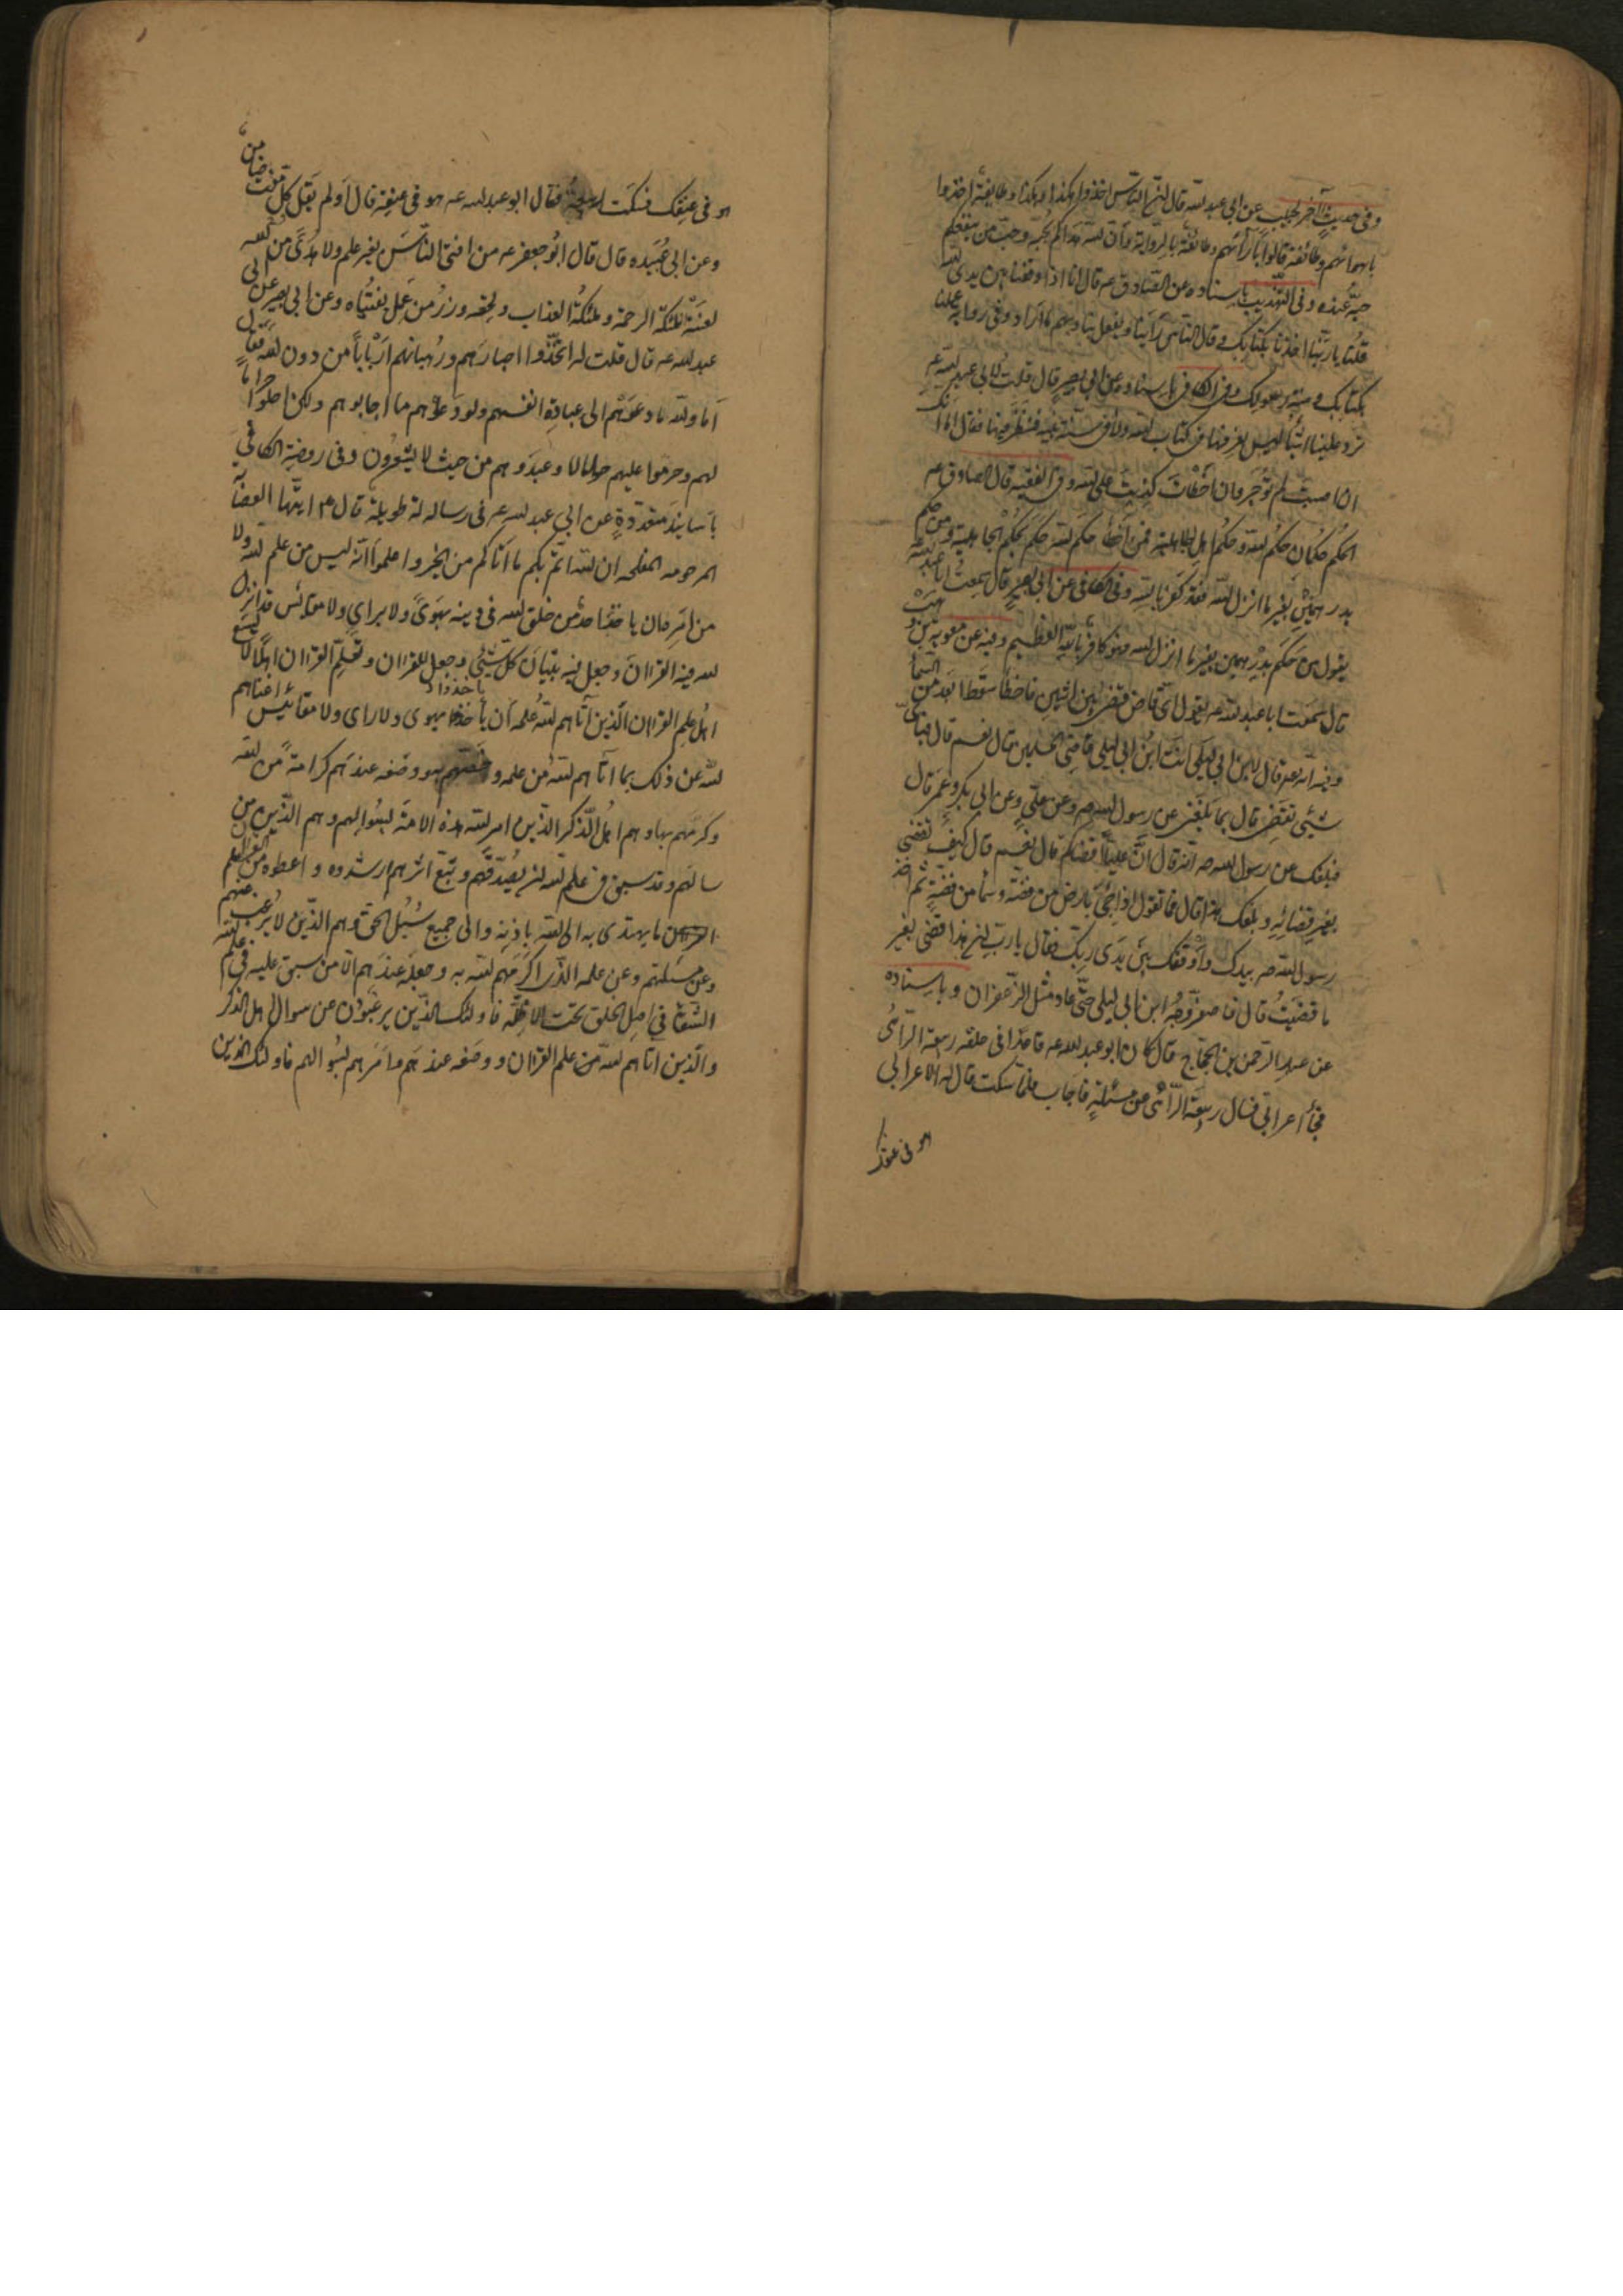 وفى حديث آخر لحبيب عن ابى عبد الله قال ان الناس اخذوا هكذا وهكذا وطايفة اخذوا
باهوائهم وطائفة قالوا بآرائهم وطائفة بالرواية وان الله هداكم بحبه وحب من ينفعكم
حبه عنده وفى التهذيب باسناده عن الصادق عم قال انا اذا وقفنا بين يدى الله
قلنا يا ربنا اخذنا بكتابك وقال الناس رأينا رأينا ويفعل بنا وبهم ما اراد وفى رواية عملنا
بكتابك وسنة رسولك وفى الكافى باسناده عن ابى بصير قال قلت لابى عبد الله عم
ترد علينا اشياء ليس نعرفها فى كتاب الله ولا فى سنة نبيه فننظر فيها فقال لا اما انك
ان اصبت لم توجر وان اخطات كذبت على الله وفى الفقيه قال الصادق عم
الحكم حكمان حكم الله وحكم اهل الجاهلية فمن اخطأ حكم الله حكم بحكم الجاهلية ومن حكم
بدرهمين بغير ما انزل الله فقد كفر بالله وفى الكافى عن ابى بصير قال سمعت ابا عبد الله
يقول من حكم بدرهمين بغير ما انزل الله فهو كافر بالله العظيم وفيه عن معوية بن وهب
قال سمعت ابا عبد الله عم يقول اى قاض قضى بين اثنين فاخطأ سقط ابعد من السماء
وفيه انه عم قال لابن ابى ليلى انت ابن ابى ليلى قاضى المسلمين قال نعم قال فباى
شيئ تقضى قال بما بلغنى عن رسول الله ص وعن على وعن ابى بكر وعمر قال
فبلغك عن رسول الله ص انه قال ان عليا اقضاكم قال نعم قال كيف تقضى
بغير قضائه وبلغك هذا قال فما تقول اذا جئ بارض من فضة وسماء من فضة ثم اخذ
رسول الله ص بيدك واوقفك بين يدى ربك فقال يا رب ان هذا قضى بغير
ما قضيت قال فاصفر وجه ابن ابى ليلى حتى عاد مثل الزعفران وباسناده
عن عبد الرحمن بن الحجاج قال كان ابو عبد الله عم قاعدا فى حلقه ربيعة الرأى
فجاء اعرابى فسال ربيعة الرأى عن مسئلة فاجاب فلما سكت قال له الاعرابى
هو فى عنقك
هو فى عنقك فسكت ربيعة فقال ابو عبد الله عم هو فى عنقه قال اولم يقل كل مفت ضامن
وعن ابى عبيده قال قال ابو جعفر عم من افتى الناس بغير علم ولا هدى من الله
لعنته ملئكة الرحمة وملئكة العذاب ولحقه وزر من عمل بفتياه وعن ابى بصير عن ابى
عبد الله عم قال قلت له اتخذوا احبارهم ورهبانهم اربابا من دون الله فقال
اما والله ما دعوهم الى عبادة انفسهم ولو دعوهم ما اجابوهم ولكن احلوا حراما
لهم وحرموا عليهم حلالا وعبدوهم من حيث لا يشعرون وفى روضة الكافى
باسانيد متعددة عن ابى عبد الله عم فى رساله له طويلة قال ع ايتها العصابة
المرحومه المفلحه ان الله اتم بكم ما اتاكم من الخير واعلموا انه ليس من علم الله ولا
من امره ان ياخذ احد من خلق الله فى دينه بهوى ولا براى ولا مقائس قد انزل
الله فيه القرآن وجعل فيه تبيان كل شيئ وجعل للقرآن وتعلم القرآن اهلا لا يسع
اهل علم القرآن الذين آتاهم الله علمه ان ياخذوا بهوى ولا راى ولا مقائيس اغناهم
الله عن ذلك بما اتاهم الله من علمه وخصهم به ووضعه عندهم كرامة من الله
وكرمهم بها وهم اهل الذكر الذين امر الله هذه الامة بسؤالهم وهم الذين من
سالهم وقد سبق فى علم الله ان يصدقهم ويتبع اثرهم ارشدوه واعطوه من علم القرآن
ما يهتدى به الى الله باذنه والى جميع سبل الحق وهم الذين لا يرغب عنهم
وعن مسئلتهم وعن علمه الذى اكرمهم الله به وجعله عندهم الا من سبق عليه فى علم الله
الشقاء فى اصل الخلق تحت الاظلة فاولئك الذين يرغبون عن سوال اهل الذكر
والذين اتاهم الله من علم القرآن ووضعه عندهم وامرهم بسوالهم فاولئك الذين